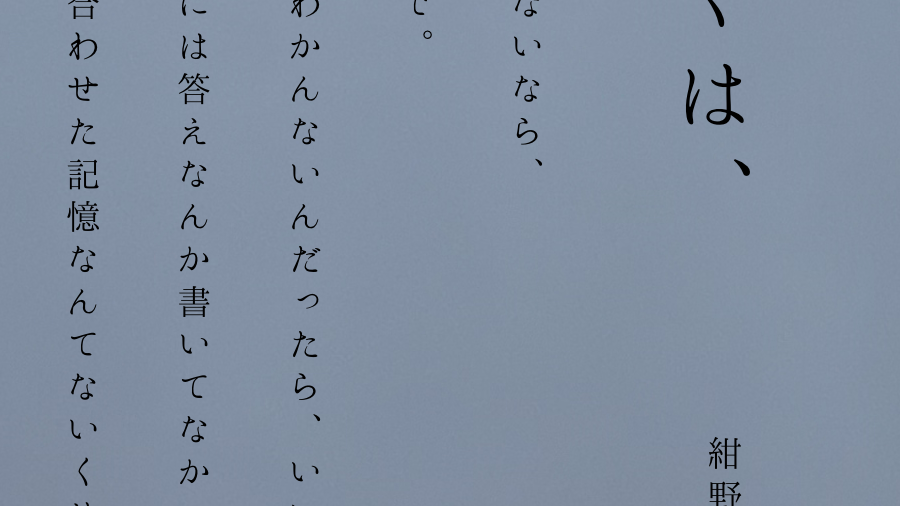 くは、
紺野
ないなら、
で。
わかんないんだったら、い
には答えなんか書いてなか
合わせた記憶なんてないくせ